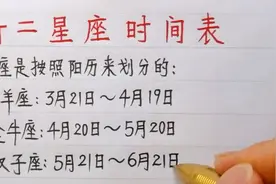 二星座时间表
座是按照阳历来划分的:
羊座: 3月21日～4月19日
金牛座: 4月20日～5月20日
双子座: 5月21日～6月21日